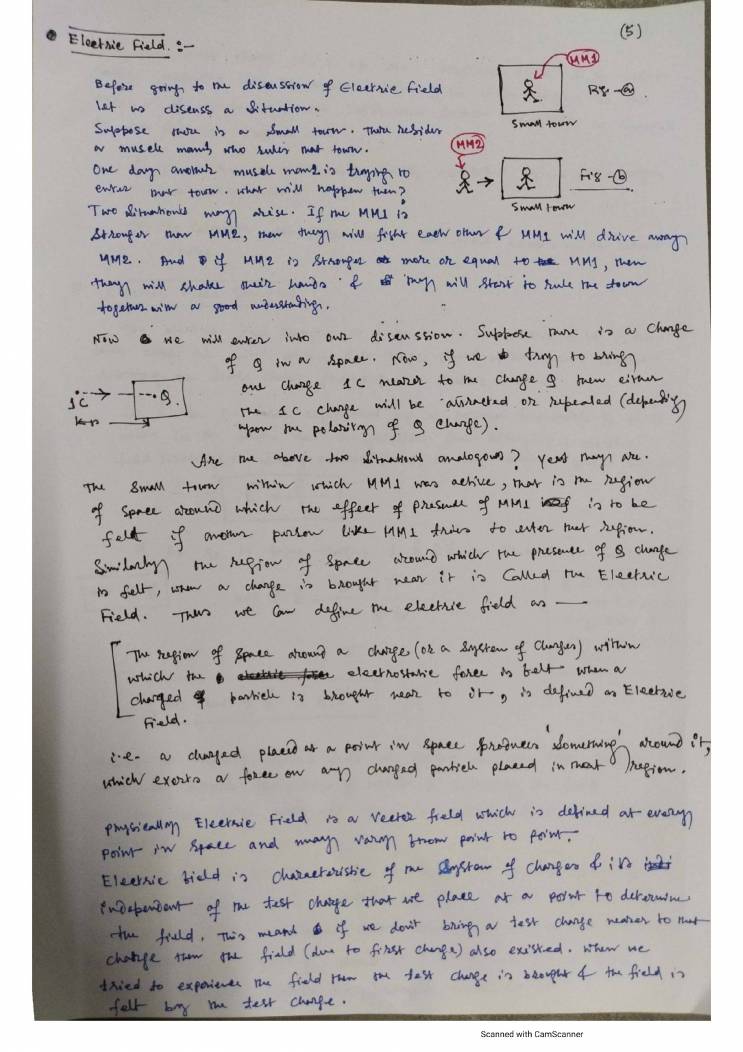 (5)
Electric Field. :-
MM1
Fig - (a).
Small town
Before going to the discussion of Electric Field
let us discuss a Situation.
Suppose there is a Small town. There resides
a muscle man1 who rules that town.
One day another muscle man2 is traying to
enter that town. what will happen then?
MM2
Fig - (b)
Small town
Two Situations may arise. If the MM1 is
Stronger than MM2, then they will fight each other & MM1 will drive away
MM2. And if MM2 is Stronger more or equal to MM1, then
they will shake their hands & they will Start to rule the town
together with a good understanding.
Now we will enter into our discussion. Suppose there is a Charge
of Q in a Space. Now, if we try to bring
one charge 1C nearer to the charge Q then either
the 1C charge will be attracted or repealed (depending
upon the polarity of Q charge).
1C
Q
Are the above two Situations analogous? yes they are.
The Small town within which MM1 was active, that is the region
of Space around which the effect of presence of MM1 is to be
felt if another person like MM1 tries to enter that region.
Similarly the region of Space around which the presence of Q charge
is felt, when a charge is brought near it is Called the Electric
Field. Thus we can define the electric field as —
The region of Space around a charge (or a System of Charges) within
which the electric force electrostatic force is felt when a
charged particle is brought near to it, is defined as Electric
Field.
i.e- a charged placed at a point in space produces 'Something' around it,
which exerts a force on any charged particle placed in that region.
physically Electric Field is a vector field which is defined at every
point in Space and may vary from point to point.
Electric field is characteristic of the System of charges & is
independent of the test charge that we place at a point to determine
the field. This means if we don't bring a test charge nearer to that
charge then the field (due to first charge) also existed. when we
tried to experience the field then the test charge is brought & the field is
felt by the test charge.
Scanned with CamScanner